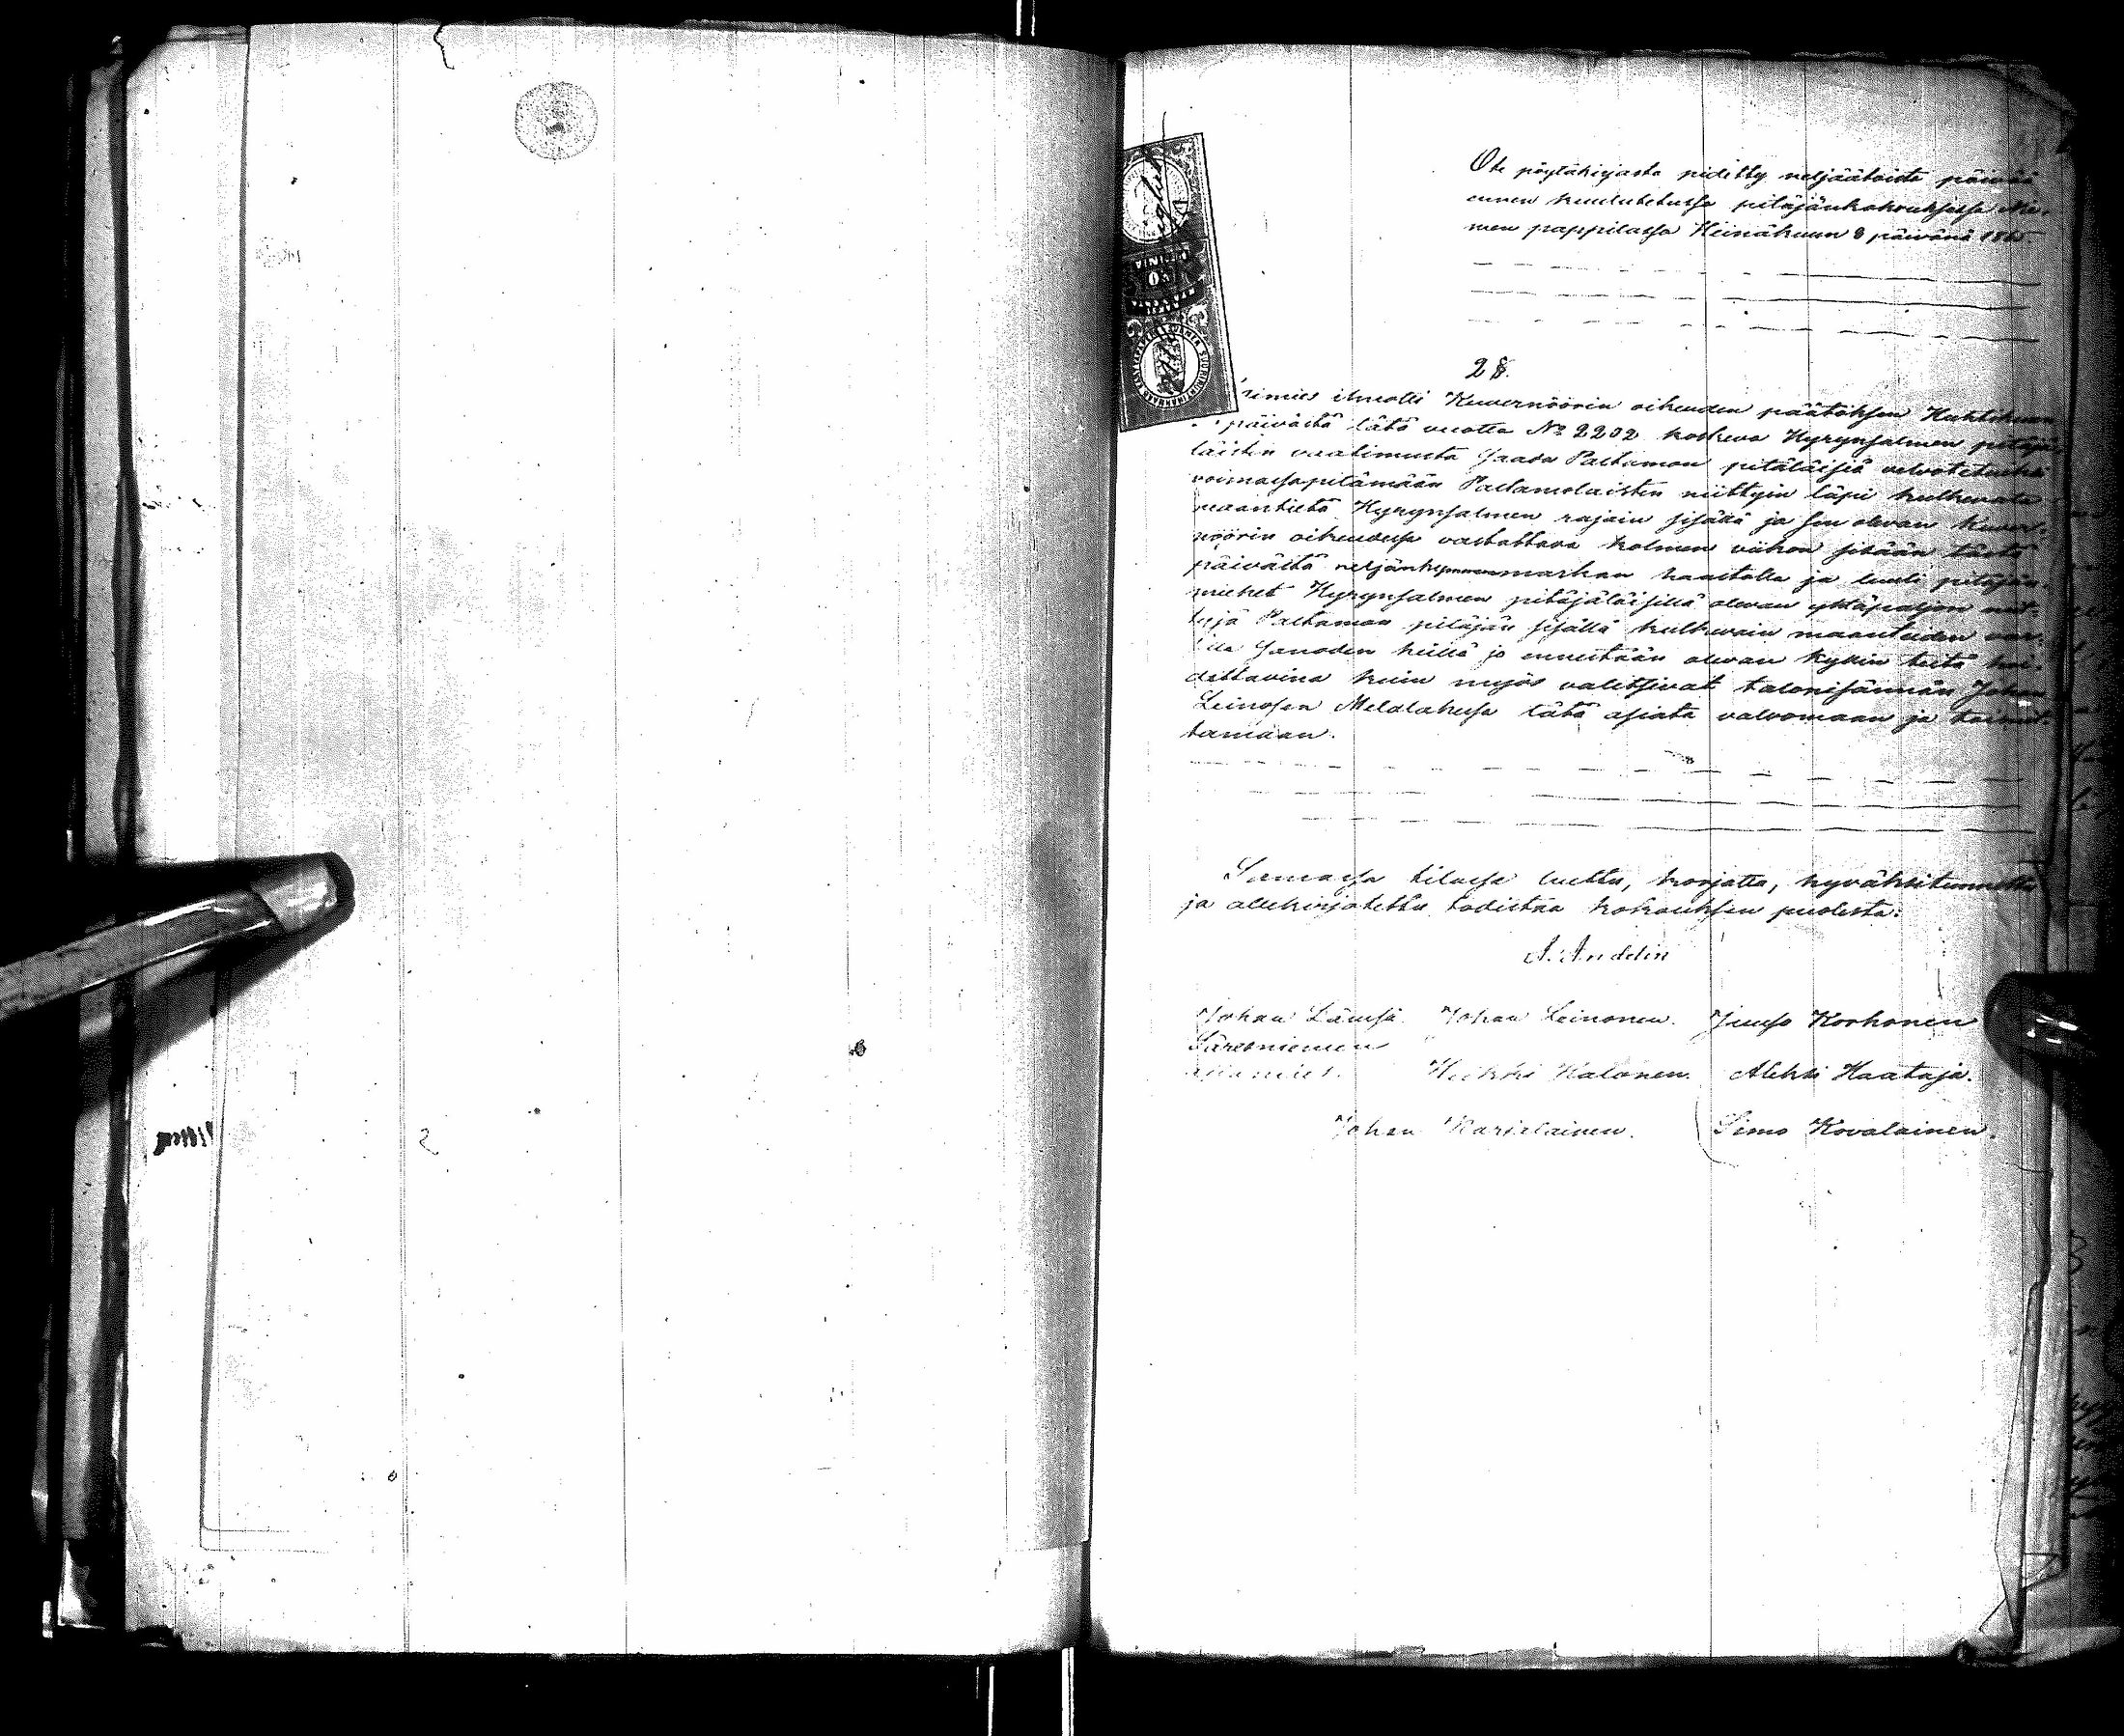 Ote pöytäkirjasta pidetty neljäätoista päivää
ennen kuulutetussa pitäjänkokouksessa Nie-
men pappilassa Heinäkuun 8 päivänä 1865.
2 §.
ilmotti Kuvernöörin oikeuden päätöksen Huhtikuun
päivästä tätä vuotta No 2202 koskeva Hyrynsalmen pitäjä-
läisten vaatimusta saada Paltamon pitäläisiä velvotetuksi
voimassapitämään Paltamolaisten niittyin läpi kulkevata
maantietä Hyrynsalmen rajain sisällä ja sen olevan Kuver-
nöörin oikeudessa vastattava kolmen viikon sisään tästä
päivästä neljänkymmenen markan haastolla ja luuli pitäjän-
miehet Hyrynsalmen pitäjäläisillä olevan yhtäpaljon niit-
tyjä Paltamon pitäjän sisällä kulkevain maanteiden var-
silla sanoden heillä jo ennestään olevan kyllin teitä hoi-
dettavina kuin myös valitsivat talonisännän Johan
Leinosen Melalahessa tätä asiata valvomaan ja toimit-
tamaan.
Samassa tilassa luettu, korjattu, hyväksitunnettu
ja allekirjotettu todistaa kokouksen puolesta:
A. Andelin
Johan Lämsä. Johan Leinonen. Juuso Korhonen
Säresniemen
Heikki Halonen. Aleksi Haataja.
Johan Karjalainen. Simo Kovalainen.